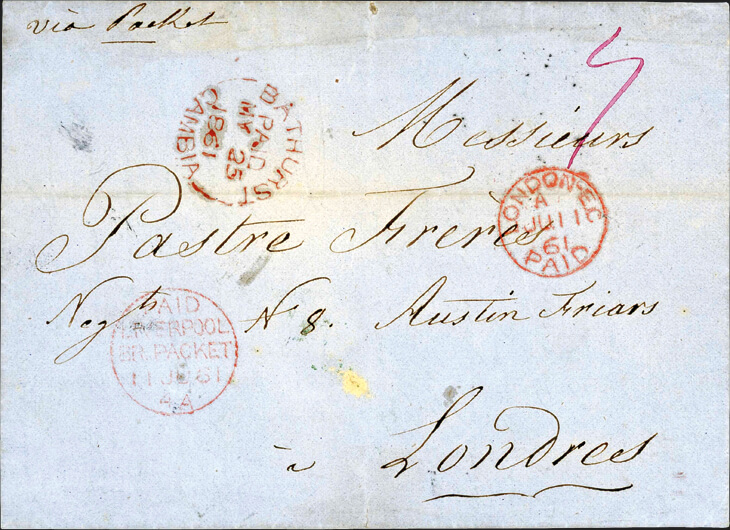 via Packet
BATHURST
GAMBIA
PAID
MY 25
1861
Messieurs
LONDON-EC
A
JU 11
61
PAID
Pastre Frères
Negts No 8. Austin Friars
PAID
LIVERPOOL
BR. PACKET
11 JU 61
4 A
à Londres